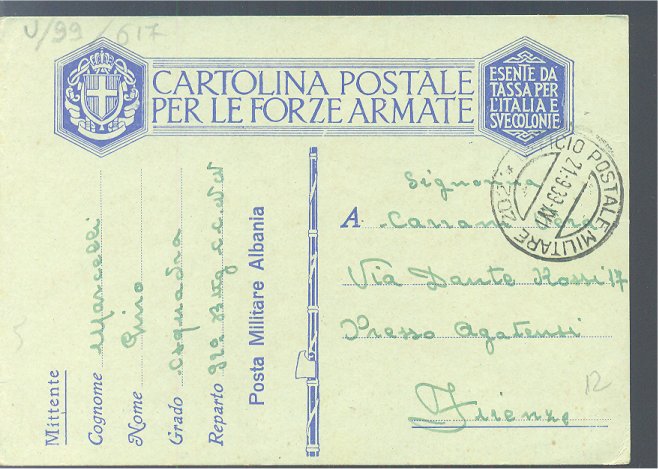 U/99/617
CARTOLINA POSTALE
PER LE FORZE ARMATE
ESENTE DA
TASSA PER
L'ITALIA E
SVE COLONIE
UFFICIO POSTALE MILITARE 202
21.9.39-XVII
Mittente
Cognome Marcelli
Nome Gino
Grado C. Squadra
Reparto
Posta Militare Albania
Signorina
A Cassan
Via Dante Rossi 17
Presso Agatensi
Firenze
12